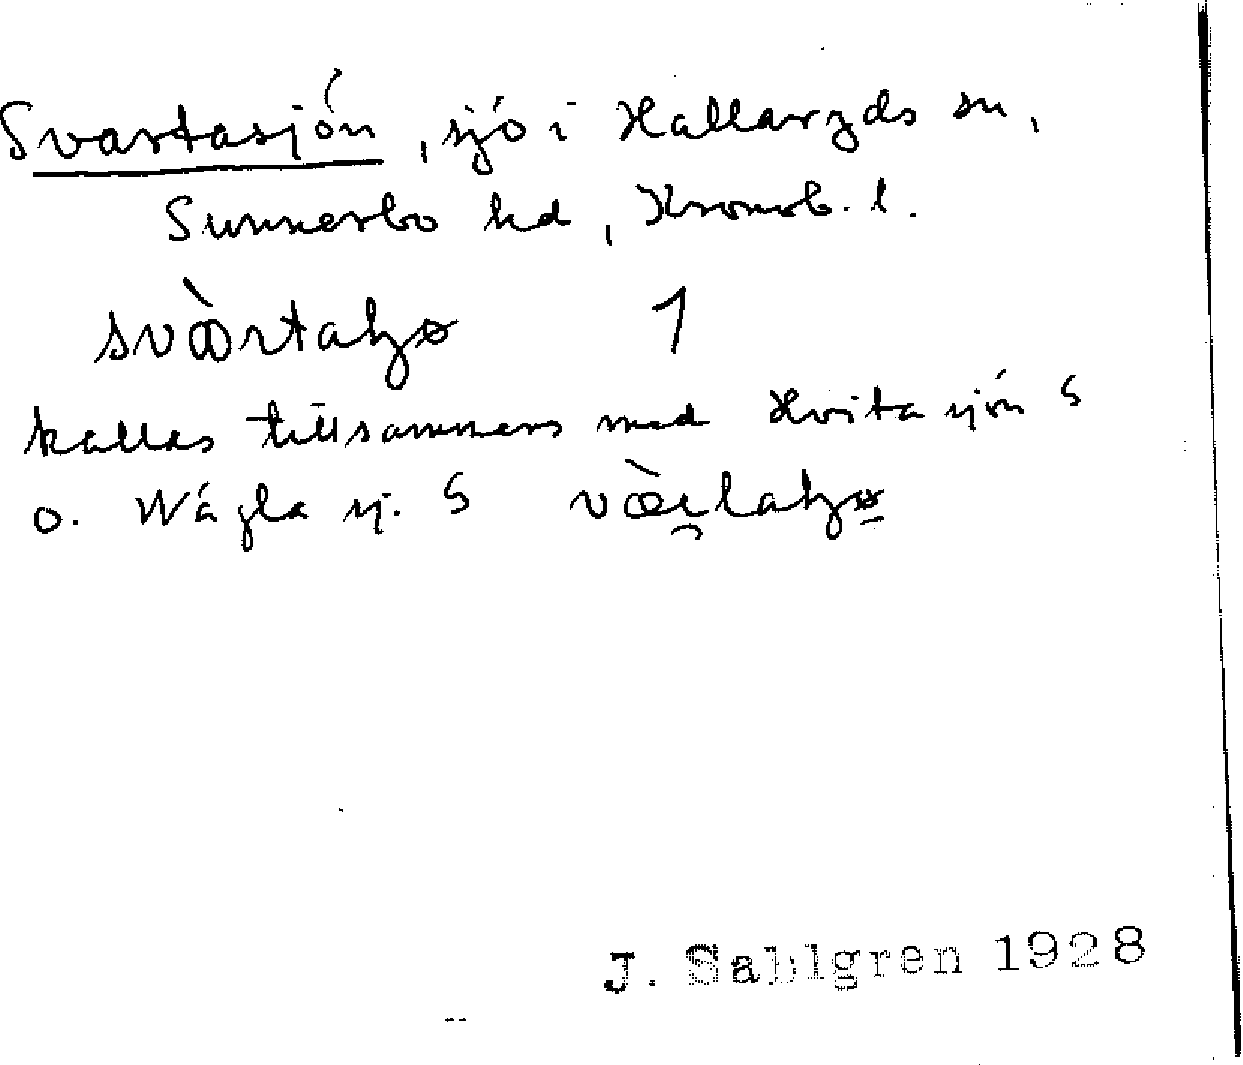 Svartasjön, sjö i Hallaryds sn,
Sunnerbo hd, Kronob. l.
1
kallas tillsammans med Hvita sjön S
o. Wägla sj. S
J. Sahlgren 1928